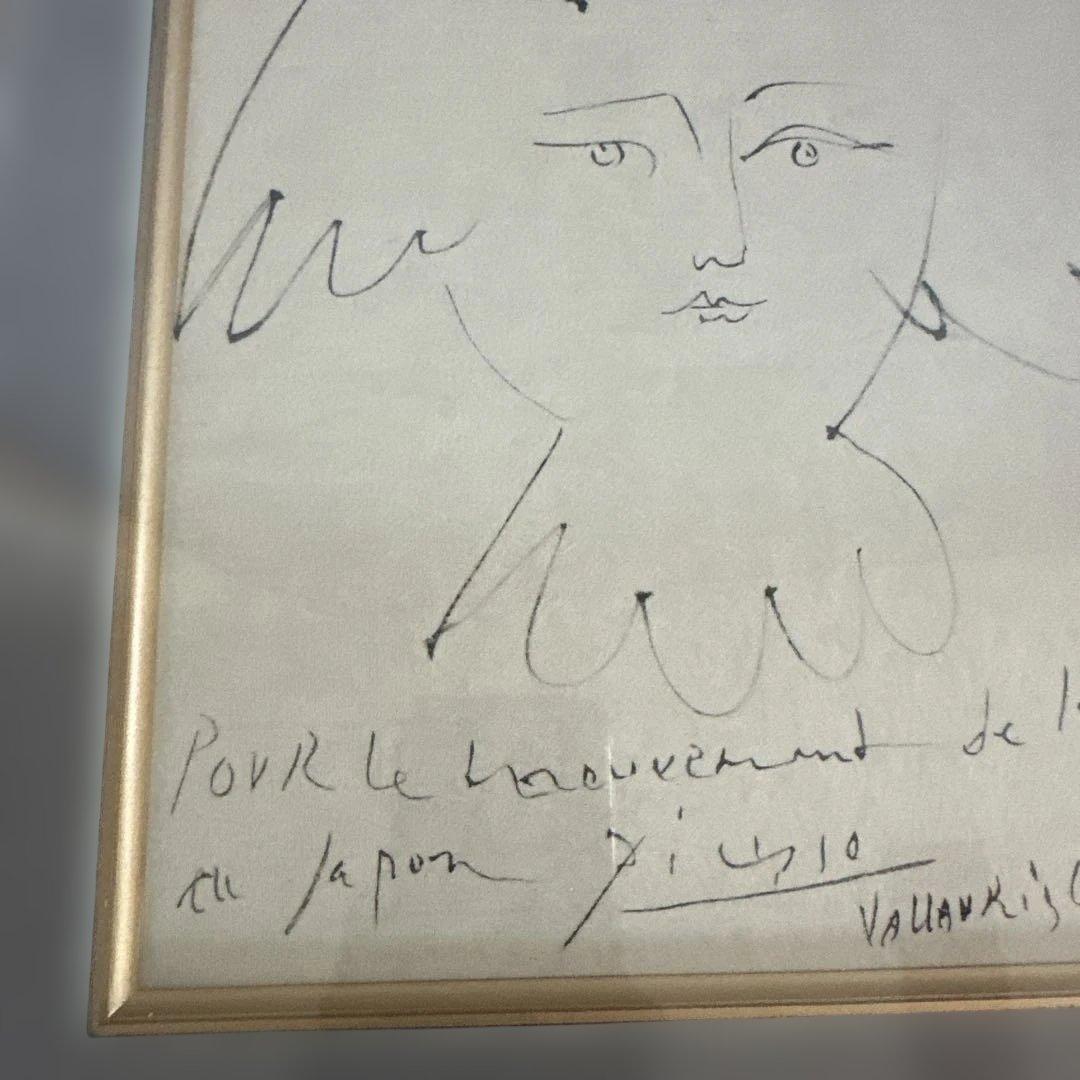 POUR le mouvement de la
au Japon Picasso
VALLAURIS